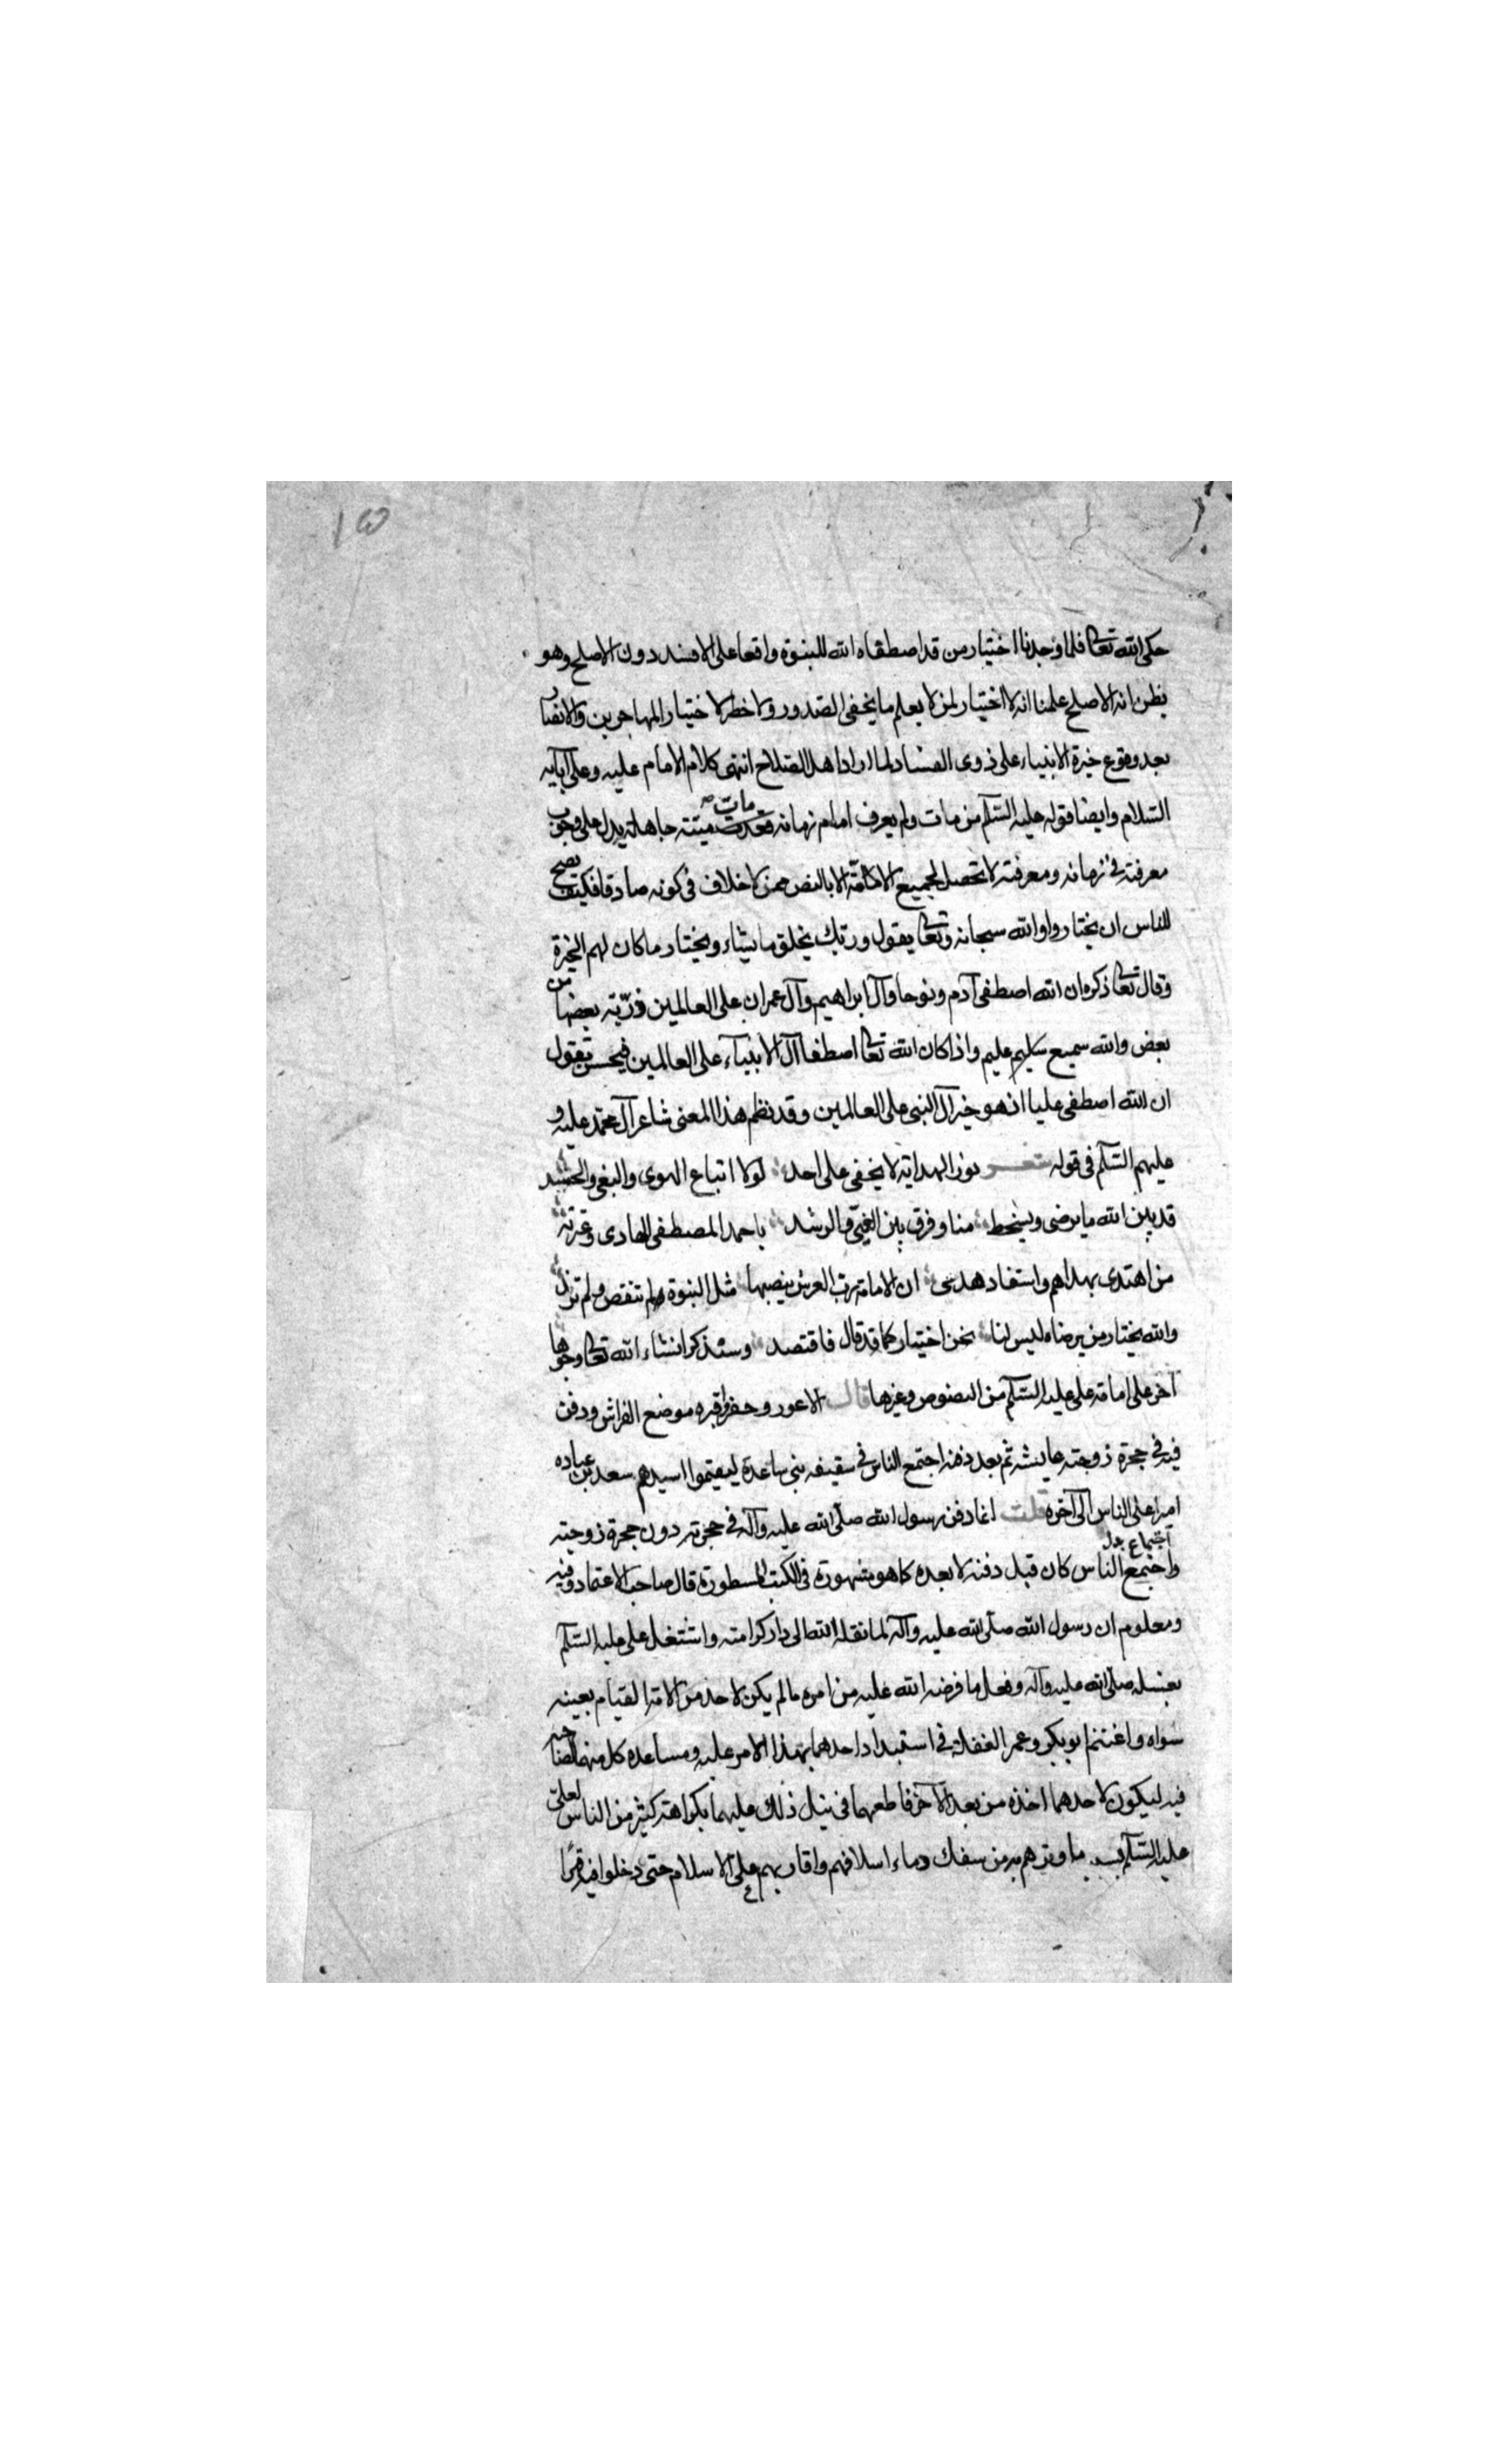 ١٥
حكى الله تعالى فلما وجدنا اختيار من قد اصطفاه الله للنبوة واقعا على الافسد دون الاصلح وهو
يظن انه الاصلح علمنا انه لا اختيار لمن لا يعلم ما يخفى الصدور ولا خطر لاختيار المهاجرين والانصار
بعد وقوع خيرة الانبياء على ذوى الفساد لما ارادا هل الصلاح انتهى كلام الامام عليه وعلى آبايه
السلام وايضا قوله عليه السلم من مات ولم يعرف امام زمانه مات ميتته جاهلية يدل على وجوب
معرفته فى زمانه ومعرفته لا تحصل لجميع الا بالنص ممن لا خلاف فى كونه صادقا فكيف يصح
للناس ان يختاروا والله سبحانه وتعالى يقول وربك يخلق ما يشاء ويختار ما كان لهم الخيرة
وقال تعالى ذكره ان الله اصطفى آدم ونوحا وآل ابراهيم وآل عمران على العالمين ذرّية بعضها من
بعض والله سميع عليم واذا كان الله تعالى اصطفا آل الانبيآء على العالمين فيحسن تقول
ان الله اصطفى عليا اذ هو خير آل النبى على العالمين وقد نظم هذا المعنى شاعر آل محمد عليه و
عليهم السلم فى قوله شعر نور الهداية لا يخفى على احد لولا اتباع الهوى والبغى والحسد
قد بين الله ما يرضى ويسخط منا وفرق بين الغىّ والرشد باحمد المصطفى الهادى وعترته
من اهتدى بهداهم واستفاد هدى ان الامامة رب العرش ينصبها مثل النبوة لم تنقص ولم تزد
والله يختار من يرضاه ليس لنا نحن اختيار كما قد قال فاقتصد وسنذكر انشاء الله تعالى وجوها
اخر على امامة على عليه السلم من النصوص وغيرها قال الاعور وحفر قبره موضع الفراش ودفن
فيه فى حجرة زوجته عايشه ثم بعد دفنه اجتمع الناس فى سقيفه بنى ساعدة ليقيموا سيدهم سعد بن عباده
اميرا على الناس الى آخره قلت انما دفن رسول الله صلّى الله عليه وآله فى حجرته دون حجرة زوجته
واجتمع الناس كان قبل دفنه لا بعده كما هو مشهورة فى الكتب المسطورة قال صاحب الاعتماد وفيه
اجتماع بدل
ومعلوم ان رسول الله صلّى الله عليه وآله لما نقله الله الى دار كرامته واشتغل على عليه السلم
بغسله صلّى الله عليه وآله وفعل ما فرضه الله عليه من امره ما لم يكن لاحد من الامة القيام بعينه
سواه واغتنم ابو بكر وعمر الغفلة فى استبداد احدهما بهذا الامر عليه ومساعدة كل منهما لصاحبه
فيه ليكون لاحدهما اخذه من بعد الآخر فاطعهما فى نيل ذلك عليهما بكراهة كثير من الناس لعلىّ
عليه السلم بما وترهم به من سفك دماء اسلافهم واقاربهم على الاسلام حتى دخلوا فيه قهرًا